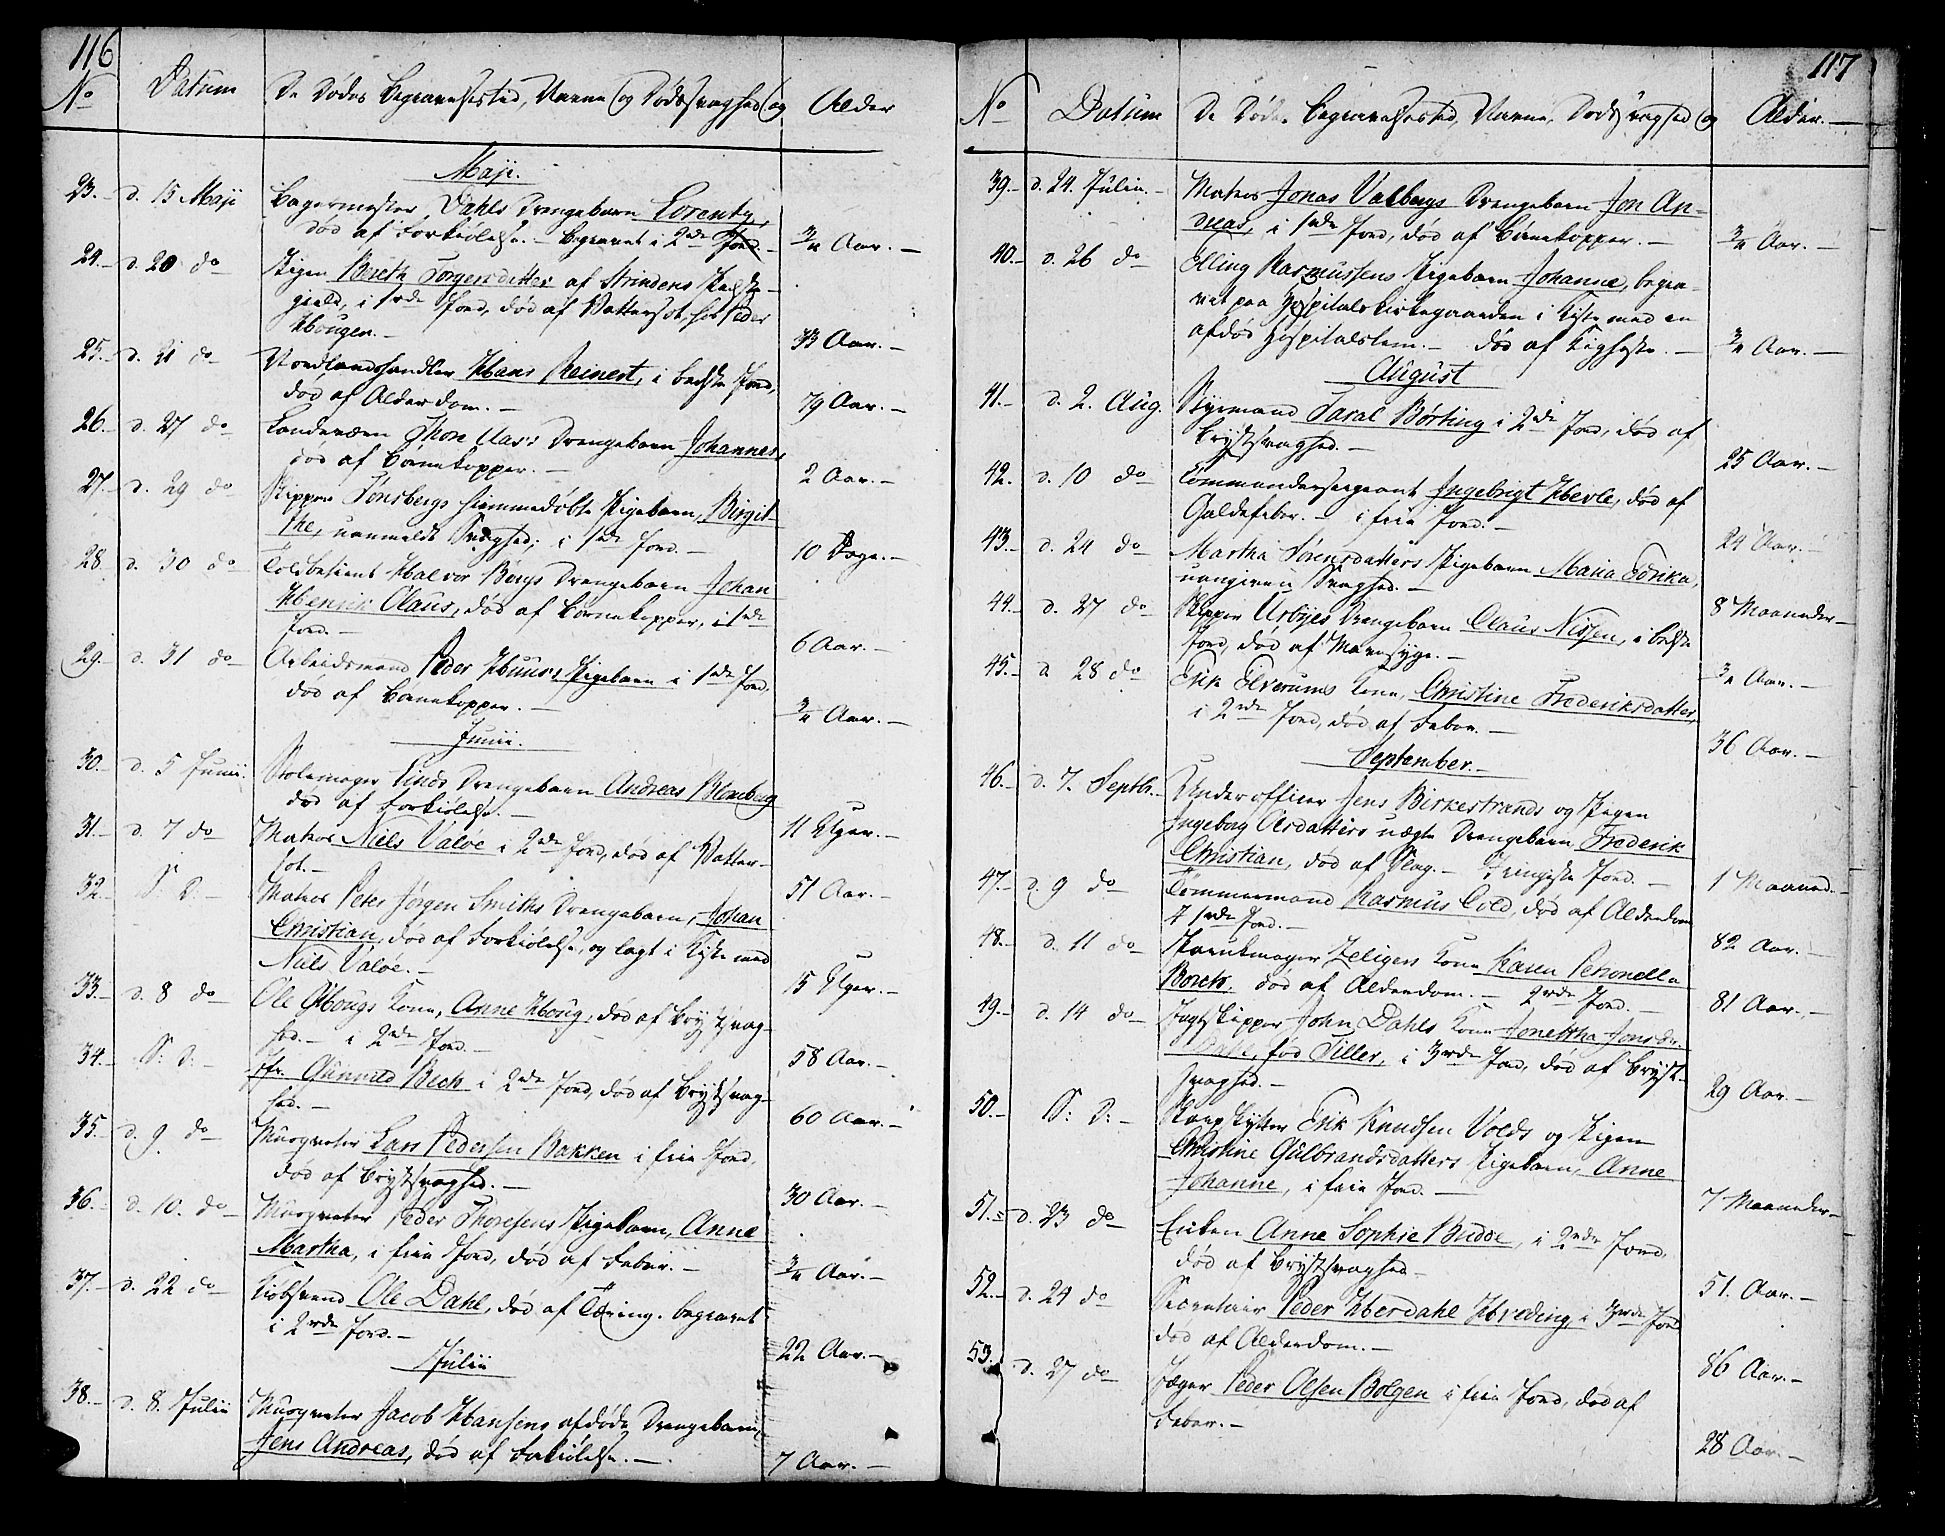 116
No Datum De Dødes Begravelsested, Navne og Dødssvaghed og Alder
Maji.
23. d. 15 Maji Bagermester Dahls Drengebarn Lorentz,
død af Forkiølelse. - Begravet i 2de Jord. - 3/4 Aar. -
24. d. 20 do Pigen Bereth Torgersdatter af Strindens Præste-
gield, i 1ste Jord, død af Vattersot, hos Peder
Hougen. - 33 Aar. -
25. d. 21 do Nordlandshandler Hans Reinert, i bedste Jord,
død af Alderdom. - 79 Aar. -
26. d. 27 do Thore Aas's Drengebarn Johannes,
død af Børnekopper. - 2 Aar. -
27. d. 29 do Skipper Tønsbergs hiemmedøbte Pigebarn, Birgit-
the, uanmeldt Svaghed; i 1ste Jord. - 10 Dage. -
28. d. 30 do Toldbetient Halvor Bergs Drengebarn Johan
Henrik Claus, død af Børnekopper, i 1ste
Jord. - 6 Aar. -
29. d. 31 do Arbeidsmand Peder Huus's Pigebarn i 1ste Jord,
død af Børnekopper. - 3/4 Aar. -
Junii.
30. d. 5 Junii. Stolemager Linds Drengebarn Andreas Blomberg
død af Forkiølelse. - 11 Uger. -
31. d. 7 do Matros Niels Valøe i 2de Jord, død af Vatter-
sot. - 51 Aar. -
32. S: D: - Matros Peter Jørgen Smiths Drengebarn, Johan
Christian, død af Forkiølelse, og lagt i Kiste med
Niels Valøe. - 15 Uger. -
33. d. 8 do Ole Hougs Kone, Anne Houg, død af Brystsvag-
hed. - i 2de Jord. - 58 Aar. -
34. S: D: - Jfr. Gunnild Bech i 2de Jord, død af Brystsvag-
hed. - 60 Aar. -
35. d. 9 do Musqueter Lars Pedersen Bakken i frie Jord,
død af Brystsvaghed. - 30 Aar. -
36. d. 10. do Musqueter Peder Thoresens Pigebarn, Anne
Martha, i frie Jord, død af Feber. - 3/4 Aar. -
37. d. 22 do Kiøbsvend Ole Dahl, død af Tæring. begravet
i 2de Jord. - 22 Aar. -
Julii
38. d. 8. Julii Musqueter Jacob Hansens afdøde Drengebarn,
Jens Andreas, død af Forkiølelse. - 7 Aar. -
117
No Datum De Dødes Begravelsested, Navne, Dødssvaghed og Alder. -
39. d. 24. Julii. - Matros Jonas Valbergs Drengebarn Jon An-
dreas, i 1ste Jord, død af Børnekopper. - 3/4 Aar. -
40. d. 26 do Elling Rasmussens Pigebarn Johanne, begra-
vet paa Hospitalskirkegaarden i Kiste med en
afdød Hospitalslem. - død af Kighoste. - 3/4 Aar. -
August
41. d. 2. Aug. Styrmand Taral Børting i 2de Jord, død af
Brystsvaghed. - 25 Aar. -
42. d. 10 do Commandersergeant Ingebrigt Hevle, død af
Galdefeber. - i frie Jord. - 24 Aar. -
43. d. 24 do Martha Sørensdatters Pigebarn Maria Edrika,
uangiven Svaghed. - 8 Maaneder -
44. d. 27 do Skipper Urbyes Drengebarn Claus Nissen, i bedste
Jord, død af Mavesyge. - 3/4 Aar. -
45. d 28 do Erik Elverums Kone, Christine Frederiksdatter,
i 2de Jord, død af Feber. - 36 Aar. -
September. -
46. d. 7. Septbr. Underofficer Jens Birkestrands og Pigen
Ingeborg Arsdatters uægte Drengebarn Frederik
Christian, død af Slag. - i ringeste Jord. - 1 Maaned. -
47. d. 9 do Tømmermand Rasmus Cold, død af Alderdom
i 1ste Jord. - 82 Aar. -
48. d. 11 do Zeligers Kone Karen Petronella
Borch. død af Alderdom. - 2de Jord. - 81 Aar. -
49. d. 14 do Jagtskipper John Dahls Kone Jonettha Jonsdr.
Dahl, fød Tiller, i 3die Jord, død af Bryst-
svaghed. - 29 Aar. -
50. S: D: - Skarpskytter Erik Knudsen Volds og Pigen
Christine Gulbrandsdatters Pigebarn, Anne
Johanne, i frie Jord. - 7 Maaneder -
51. d. 23 do Enken Anne Sophie Budde, i 2de Jord,
død af Brystsvaghed. - 51. Aar. -
52. d. 24 do Secretair Peder Herdahl Hveding, i 3die Jord
død af Alderdom. - 86 Aar. -
53. d. 27 do Jæger Peder Olsen Bolgen i frie Jord, død af
Feber. - 28 Aar. -